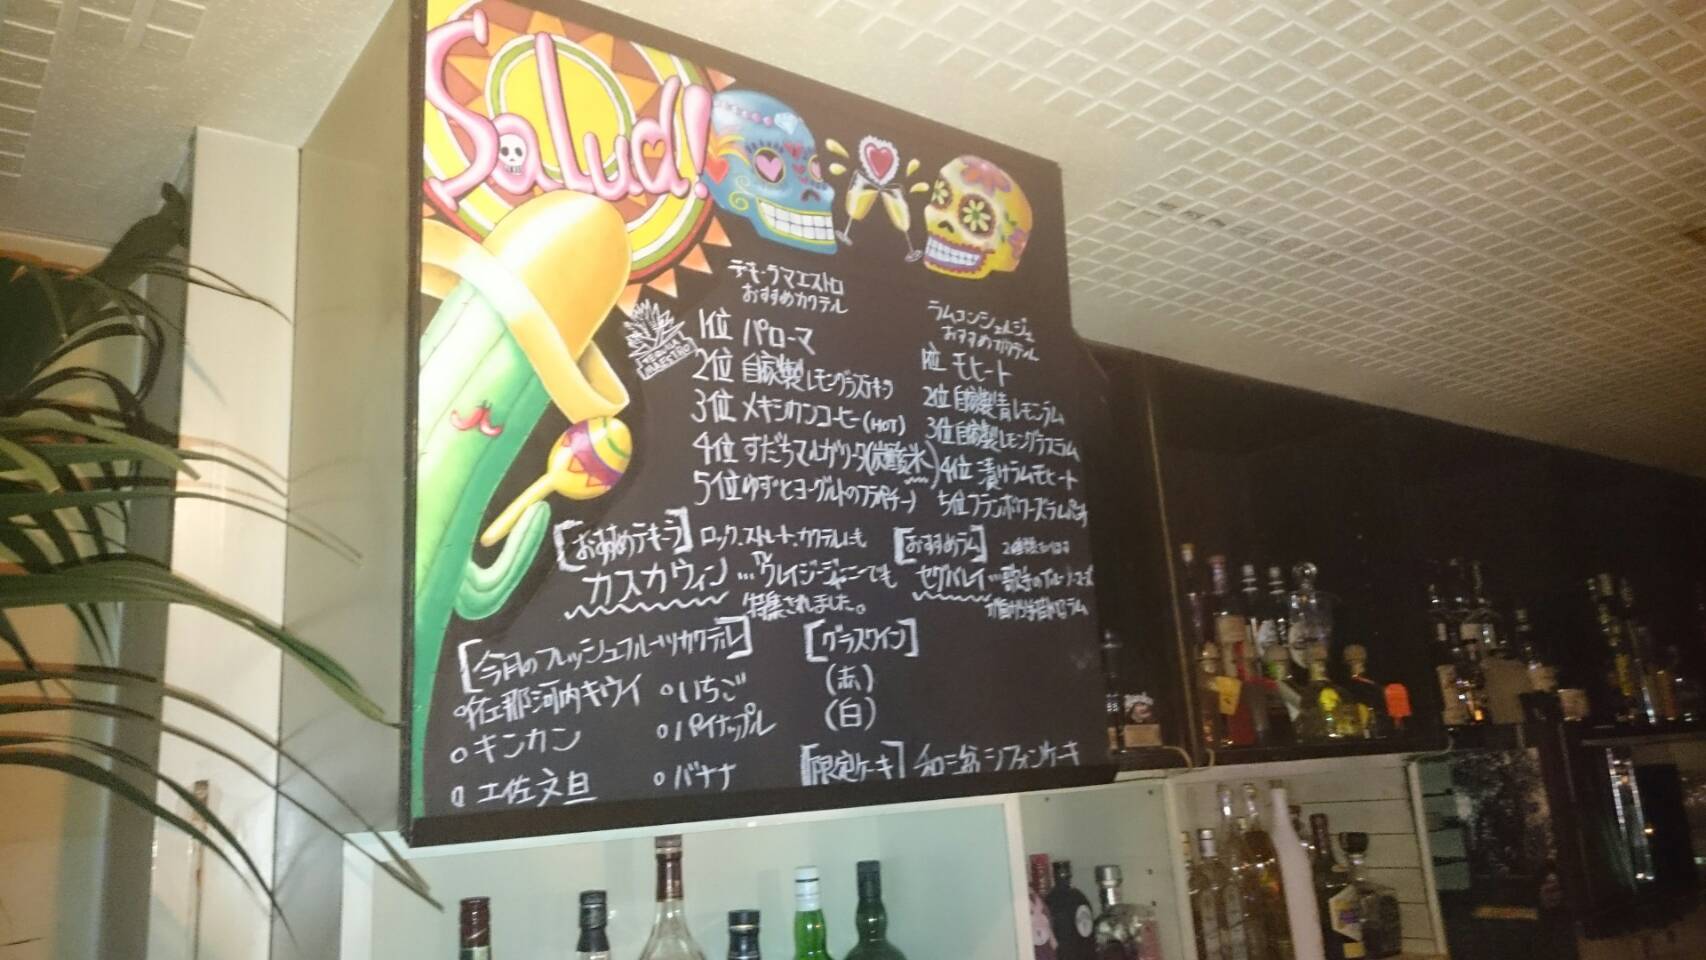 Salud!
テキーラマエストロ
おすすめカクテル
TEQUILA
MAESTRO
1位 パローマ
2位 自家製レモングラステキーラ
3位 メキシカンコーヒー(HOT)
4位 すだちマルガリータ(炭酸氷)
5位 ゆずとヨーグルトのフラペチーノ
ラムコンシェルジュ
おすすめカクテル
1位 モヒート
2位 自家製青レモンラム
3位 自家製レモングラスラム
4位 漬けラムモヒート
5位 フランボワーズラムパンチ
[おすすめテキーラ] ロック、ストレート、カクテルにも
カスカウィン …TVクレイジージャーニーでも
特集されました。
[おすすめラム]
セグバレイ…歌手のブルーノ・マーズ
が手掛けるラム
[今月のフレッシュフルーツカクテル]
○佐那河内キウイ ○いちご
○キンカン ○パイナップル
○土佐文旦 ○バナナ
[グラスワイン]
(赤)
(白)
[限定ケーキ] 和三盆シフォンケーキ